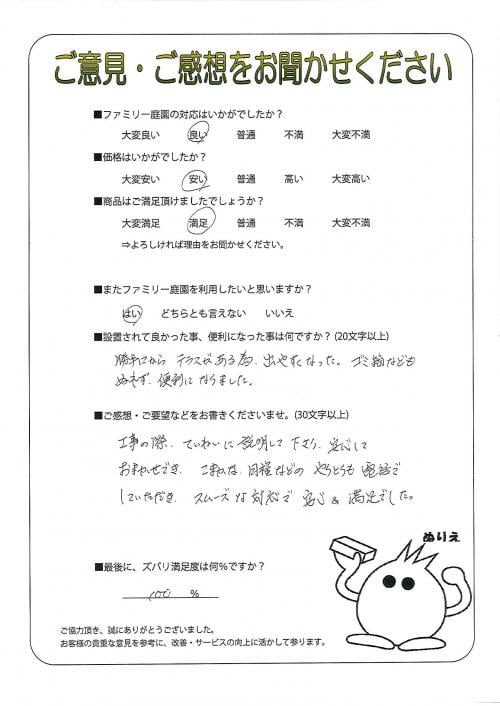 ご意見・ご感想をお聞かせください
■ファミリー庭園の対応はいかがでしたか？
大変良い 良い 普通 不満 大変不満
■価格はいかがでしたか？
大変安い 安い 普通 高い 大変高い
■商品はご満足頂けましたでしょうか？
大変満足 満足 普通 不満 大変不満
⇒よろしければ理由をお聞かせください。
■またファミリー庭園を利用したいと思いますか？
はい どちらとも言えない いいえ
■設置されて良かった事、便利になった事は何ですか？(20文字以上)
勝手口から テラスがある為、出やすくなった。ゴミ箱なども
ぬれず、便利になりました。
■ご感想・ご要望などをお書きくださいませ。(30文字以上)
工事の際、ていねいに説明して下さり、安心して
おまかせでき、こまかな、日程などの やりとりも 電話で
していただき、スムーズな対応で 安心＆満足でした。
ぬりえ
■最後に、ズバリ満足度は何%ですか？
100 %
ご協力頂き、誠にありがとうございました。
お客様の貴重な意見を参考に、改善・サービスの向上に活かして参ります。